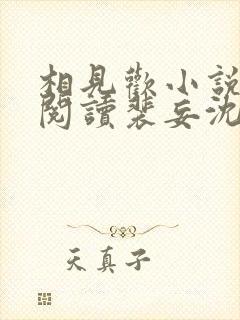 相見歡小說
閱讀裴妄沈
天真子